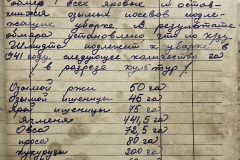 обмер всех яровых и остав-
шихся озимых посевов подле-
жащих уборке и в результате
обмера установлено что по к/зу
подлежит к уборке в
1941 году следующее количество га
в разрезе культур:
Озимой ржи 50 га
Озимой пшеницы 46 га
Ярой пшеницы 75 га
Ячменя 441,5 га
Овса 72,5 га
проса 80 га
кукурузы 200 га